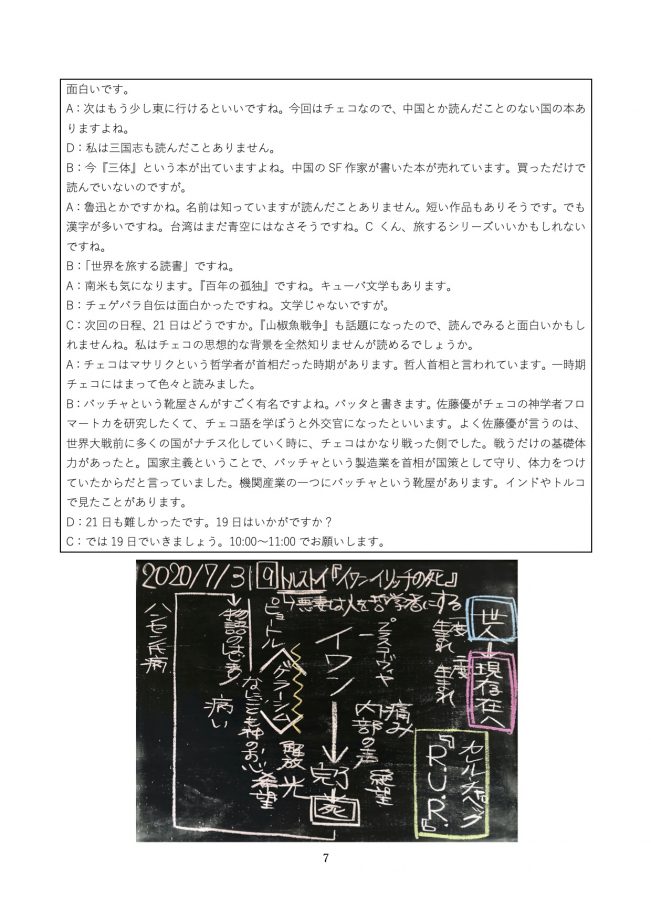 面白いです。
A：次はもう少し東に行けるといいですね。今回はチェコなので、中国とか読んだことのない国の本あ
りますよね。
D：私は三国志も読んだことありません。
B：今『三体』という本が出ていますよね。中国の SF 作家が書いた本が売れています。買っただけで
読んでいないのですが。
A：魯迅とかですかね。名前は知っていますが読んだことありません。短い作品もありそうです。でも
漢字が多いですね。台湾はまだ青空にはなさそうですね。C くん、旅するシリーズいいかもしれない
ですね。
B：「世界を旅する読書」ですね。
A：南米も気になります。『百年の孤独』ですね。キューバ文学もあります。
B：チェゲバラ自伝は面白かったですね。文学じゃないですが。
C：次回の日程、21 日はどうですか。『山椒魚戦争』も話題になったので、読んでみると面白いかもし
れませんね。私はチェコの思想的な背景を全然知りませんが読めるでしょうか。
A：チェコはマサリクという哲学者が首相だった時期があります。哲人首相と言われています。一時期
チェコにはまって色々と読みました。
B：バッチャという靴屋さんがすごく有名ですよね。バッタと書きます。佐藤優がチェコの神学者フロ
マートカを研究したくて、チェコ語を学ぼうと外交官になったといいます。よく佐藤優が言うのは、
世界大戦前に多くの国がナチス化していく時に、チェコはかなり戦った側でした。戦うだけの基礎体
力があったと。国家主義ということで、バッチャという製造業を首相が国策として守り、体力をつけ
ていたからだと言っていました。機関産業の一つにバッチャという靴屋があります。インドやトルコ
で見たことがあります。
D：21 日も難しかったです。19 日はいかがですか？
C：では 19 日でいきましょう。10:00～11:00 でお願いします。
2020/7/31 9 トルストイ『イワン・イリッチの死』
↳悪妻は人を哲学者にする
世人
↓
現存在へ
一度生まれ
二度生まれ
プラスコーヴィヤ
イワン
ピョートル
ゲラーシム
物語のはじまり
ハンセン氏病
病い
なにごとも神のおぼし
希望
解放
光
内部の声
痛み
完了
死
カレル・チャペック
『R.U.R.』
7